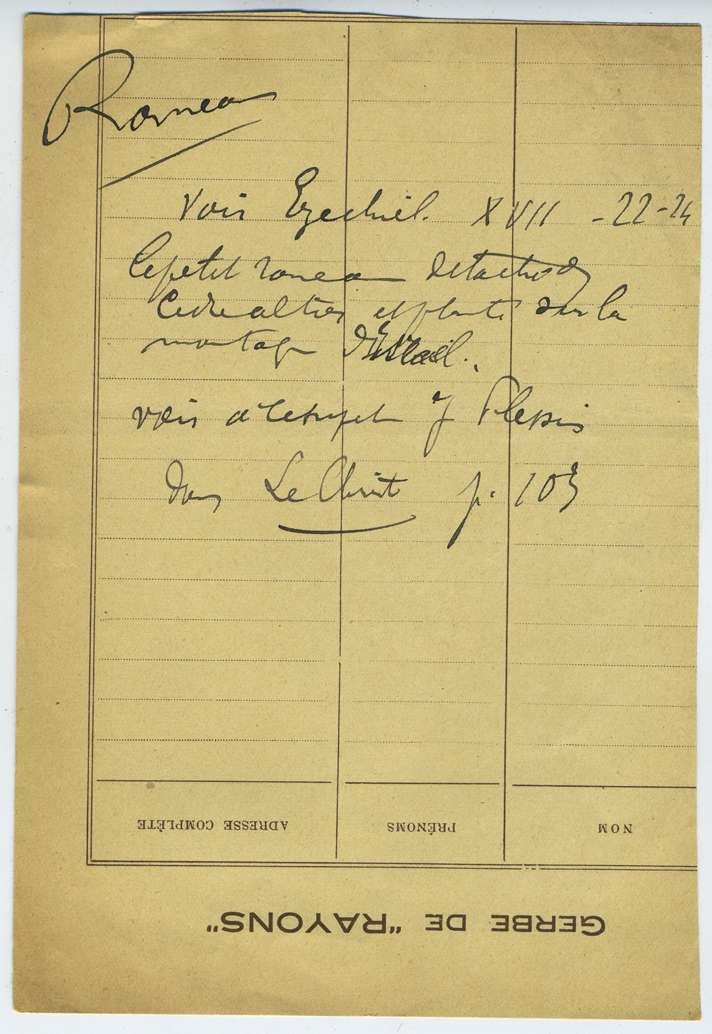 Rameau
Voir Ezechiel. XVII - 22-24
Le petit rameau détaché du
Cedre altier et planté sur la
montagne d'Israël.
voir à ce sujet J Plessis
dans Le Christ p. 103
NOM PRÉNOMS ADRESSE COMPLÈTE
GERBE DE "RAYONS"